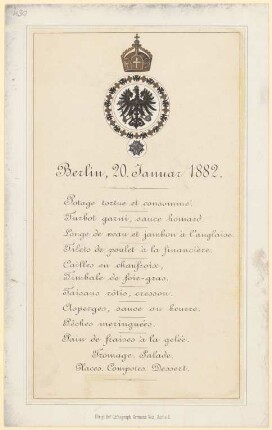 Berlin, 20. Januar 1882.
Potage tortue et consommé.
Turbot garni, sauce homard
Longe de veau et jambon à l'anglaise.
Filets de poulet à la financière.
Cailles en chaufroix,
Timbale de foie-gras.
Faisans rôtis, cresson.
Asperges, sauce au beurre.
Pêches meringuées.
Pain de fraises à la gelée.
Fromage. Salade.
Glaces. Compotes. Dessert.